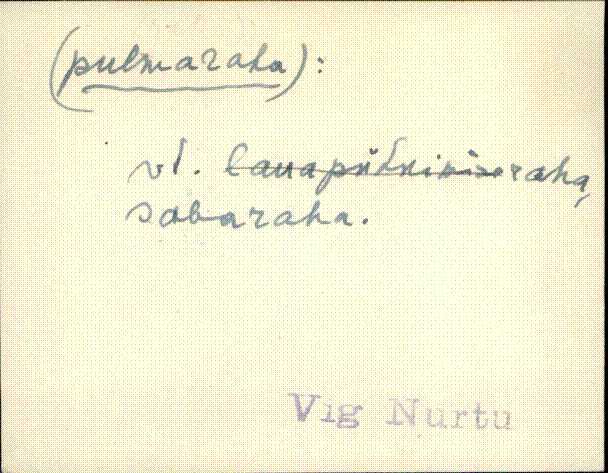 (pulmaraha):
vt. lauapühkimiseraha,
sabaraha.
Vig Nurtu